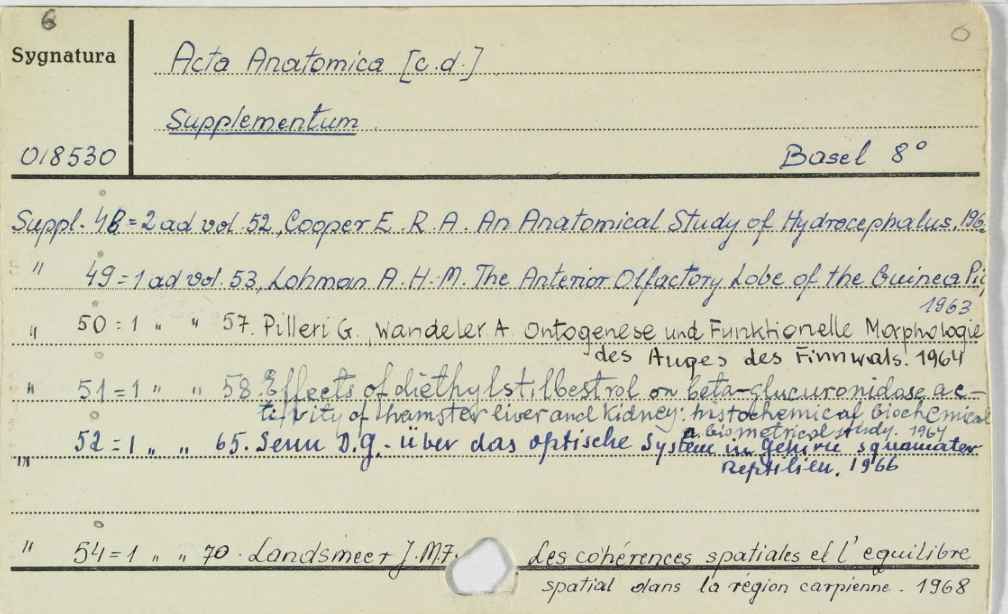 6
Sygnatura
Acta Anatomica [c.d.]
Supplementum
018530
Basel 8°
Suppl. 48 = 2 ad vol. 52, Cooper E. R. A. An Anatomical Study of Hydrocephalus, 196
" 49 = 1 ad vol. 53, Lohman A. H. M. The Anterior Olfactory Lobe of the Guinea Pig
1963
" 50 = 1 " " 57. Pilleri G., Wandeler A Ontogenese und Funktionelle Morphologie
des Auges des Finnwals. 1964
" 51 = 1 " " 58. Effects of diethylstilbestrol on beta-glucuronidase ac-
tivity of hamster liver and kidney: histochemical biochemical
a. biometrical study. 1964
" 52 = 1 " " 65. Senn D.g. - über das optische System in gehirn squamater
Reptilien. 1966
" 54 = 1 " " 70. Landsmeer J. M. F. Les cohérences spatiales et l'equilibre
spatial dans la région carpienne. 1968